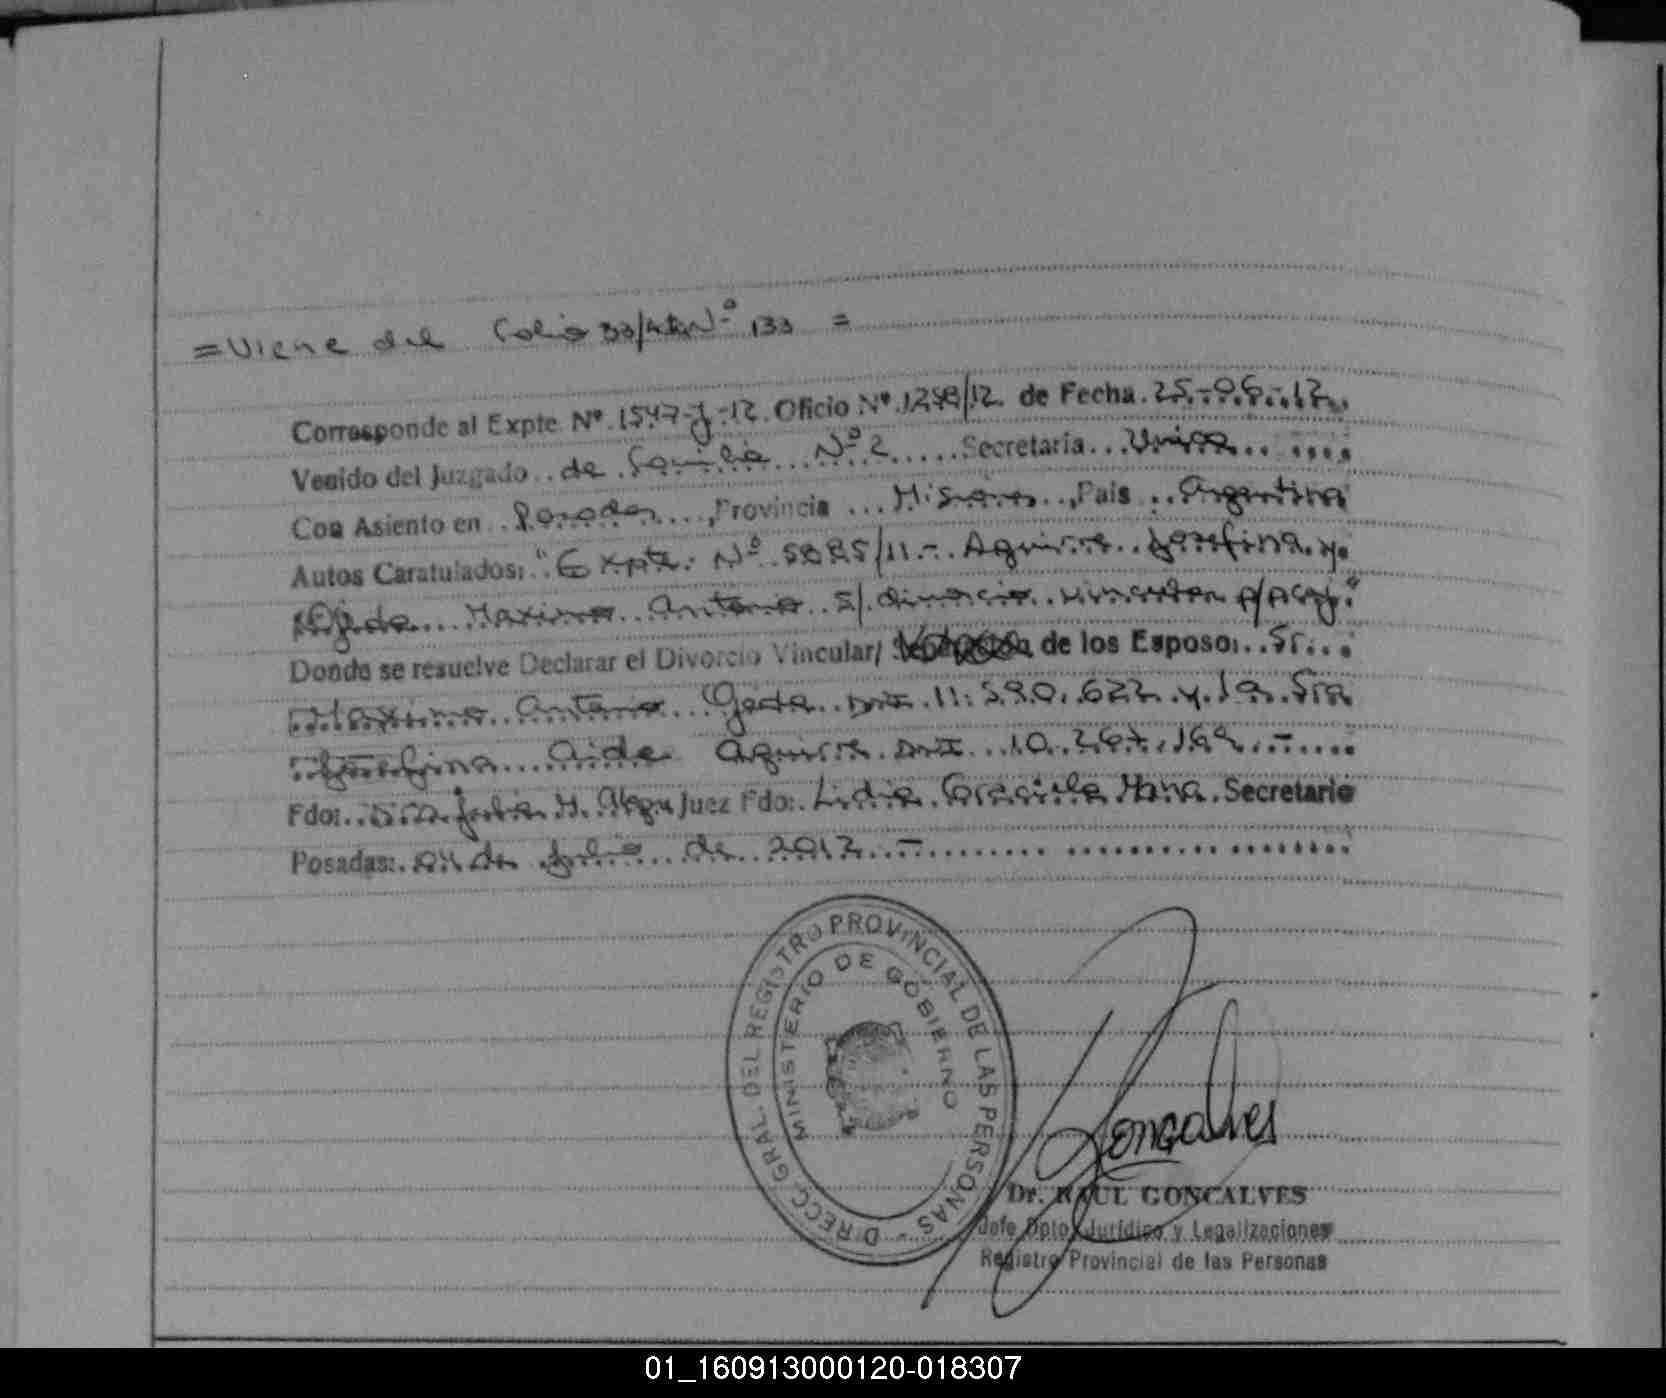 = Viene del Folio 33/ Nº 133 =
Corresponde al Expte Nº 1547-J-12 Oficio Nº 1298/12 de Fecha 25-06-12
Venido del Juzgado de Familia Nº 2 Secretaria Unica
Con Asiento en Posadas, Provincia Misiones, Pais Argentina
Autos Caratulados: "Expte. Nº 5885/11.- Aguirre Josefina y
Ojeda Maximo Antonio s/ divorcio vincular p/
Donde se resuelve Declarar el Divorcio Vincular/ de los Esposo: Sr.
Maximo Antonio Ojeda DNI 11.590.622 y la Sra
Josefina Aide Aguirre DNI 10.267.169.-
Fdo: Dra Julia M. Juez Fdo: Lidia Graciela Secretario
Posadas: 04 de Julio de 2012.-
DIRECC. GRAL. DEL REGISTRO PROVINCIAL DE LAS PERSONAS -
MINISTERIO DE GOBIERNO
Goncalves
Dr. RAUL GONCALVES
Jefe Dpto. Jurídico y Legalizaciones
Registro Provincial de las Personas
01_160913000120-018307